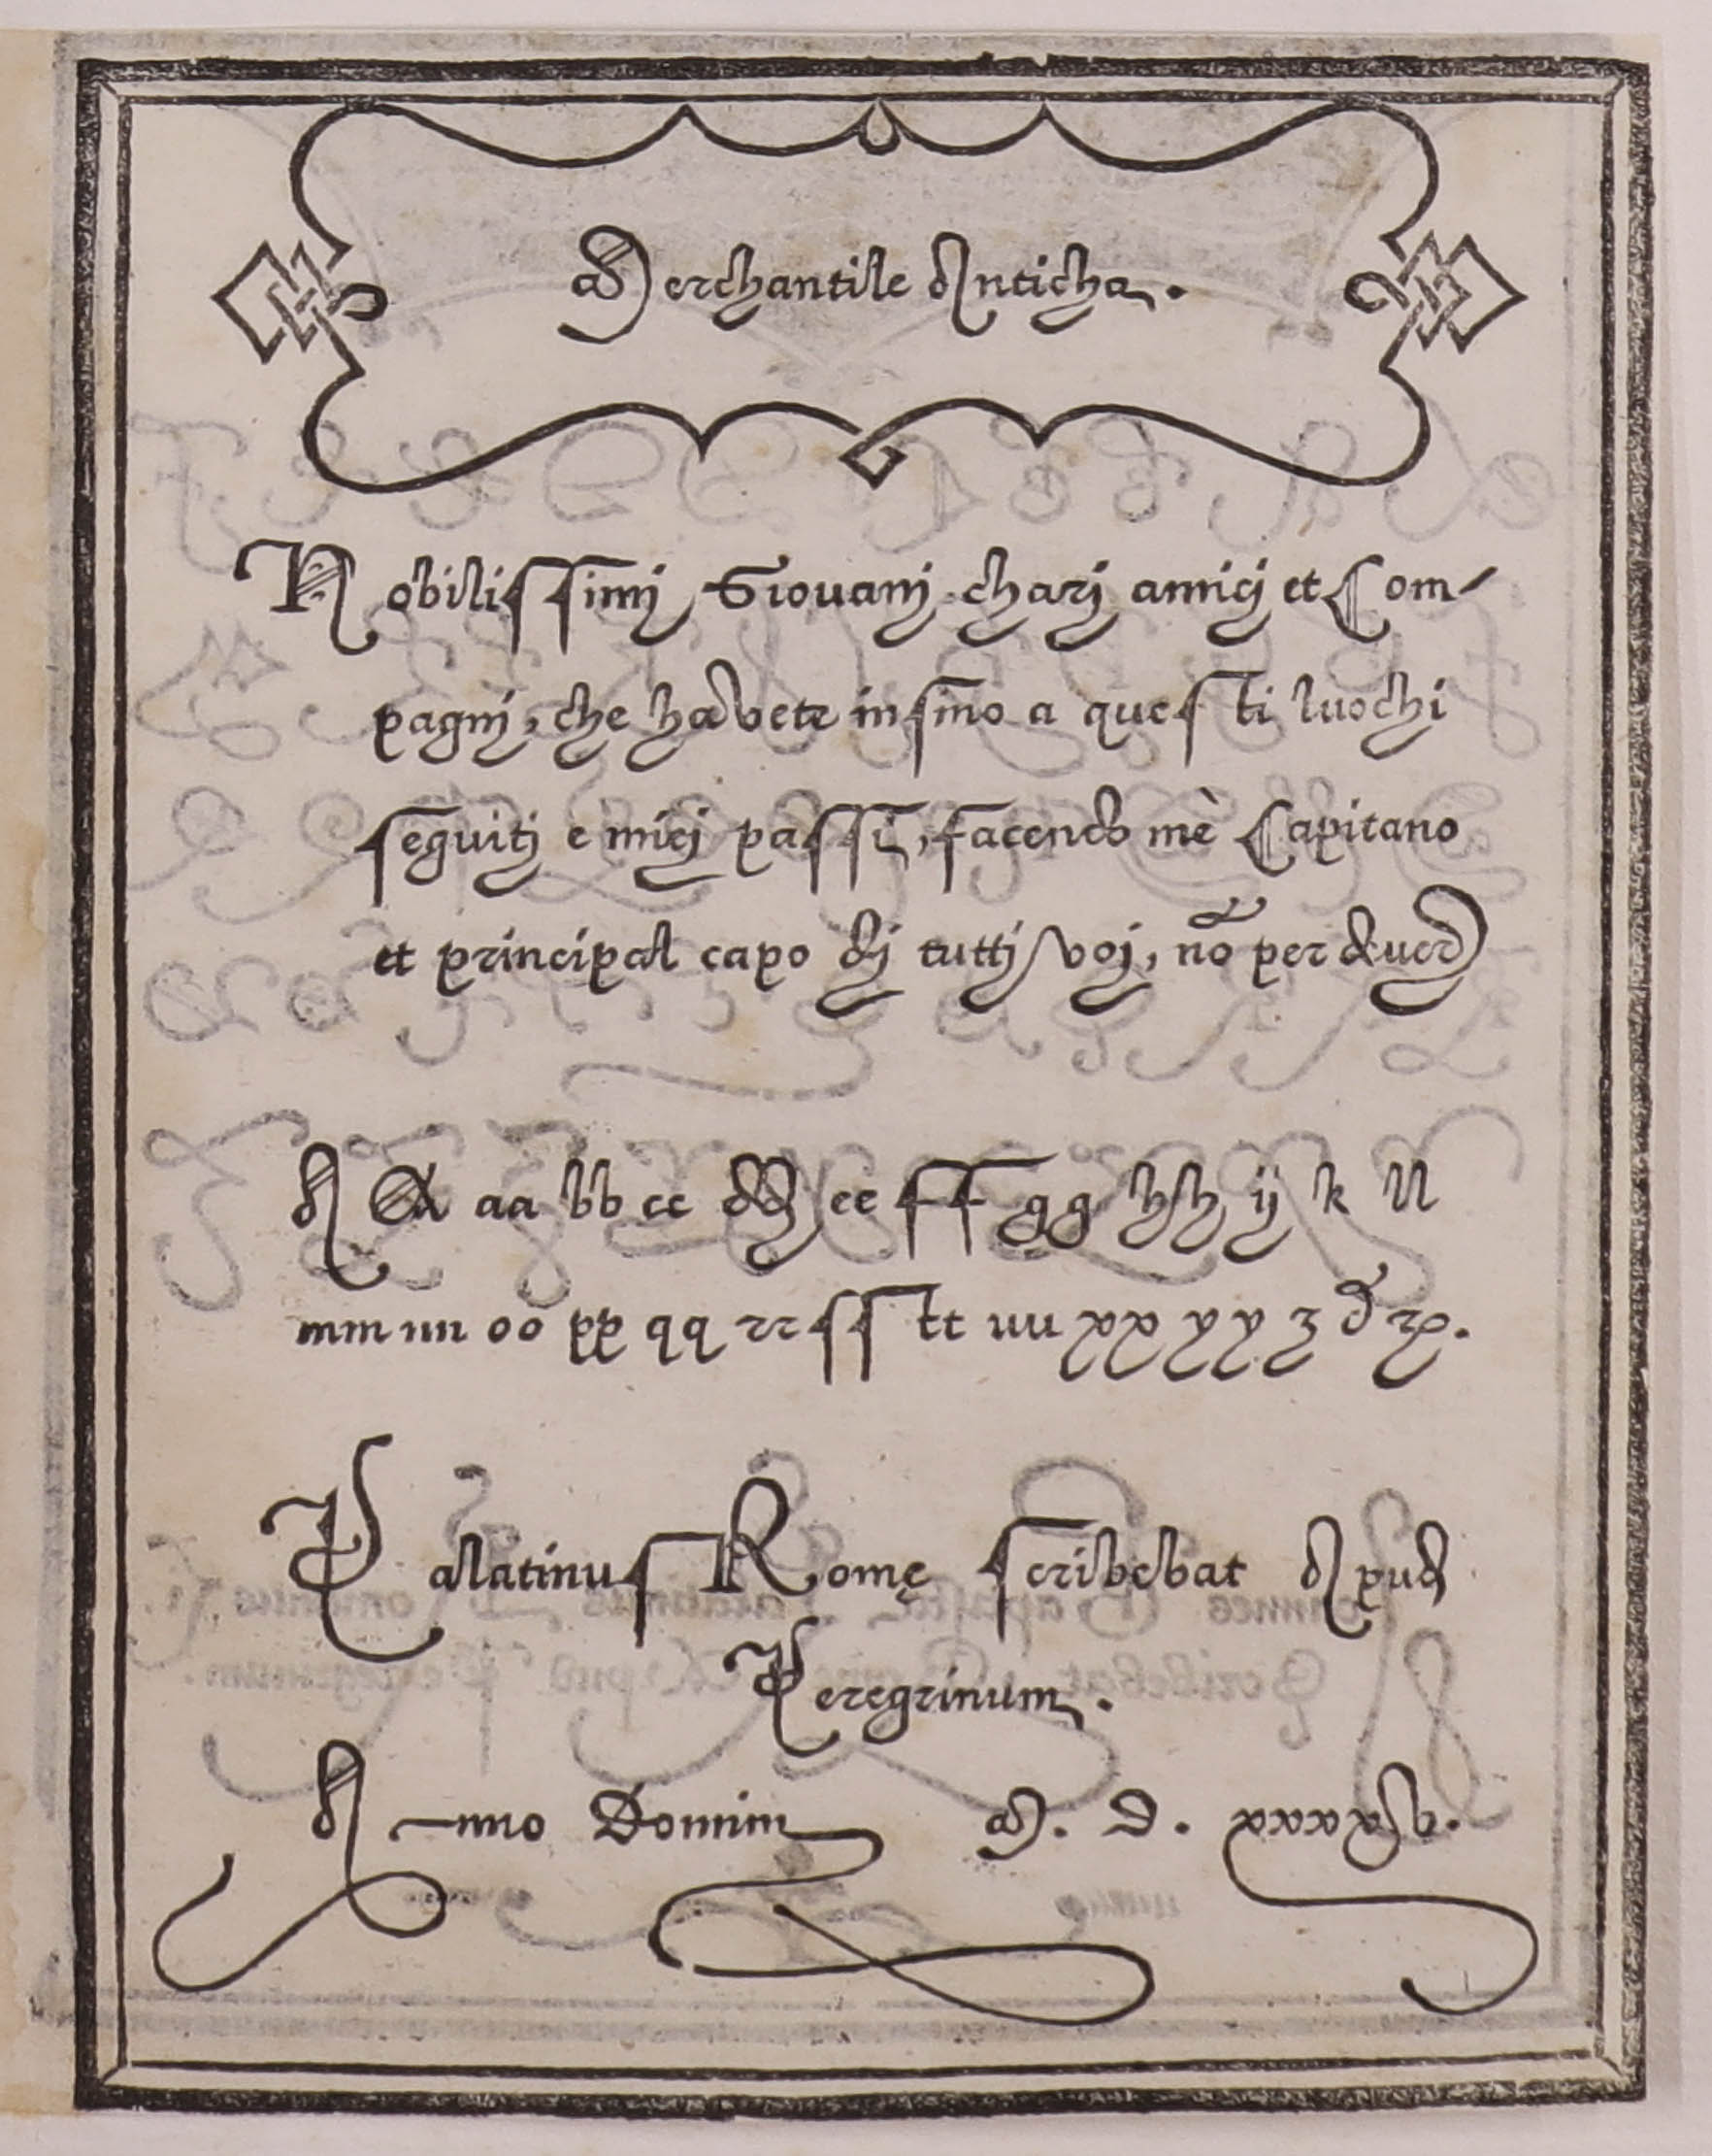 Merchantile Anticha.
Nobilissimj Giouanj charj amicj et Com-
pagnj, che havete insino a questi luochi
seguitj e miej passi, facendo mè Capitano
et principal capo dj tuttj voj, nõ per dever
A A aa bb cc dd ee ff gg hh ij k ll
mm nn oo pp qq rr ss tt uu xx yy z
Palatinus Romę scribebat Apud
Peregrinum.
Anno Domini M. D. xxxxv.